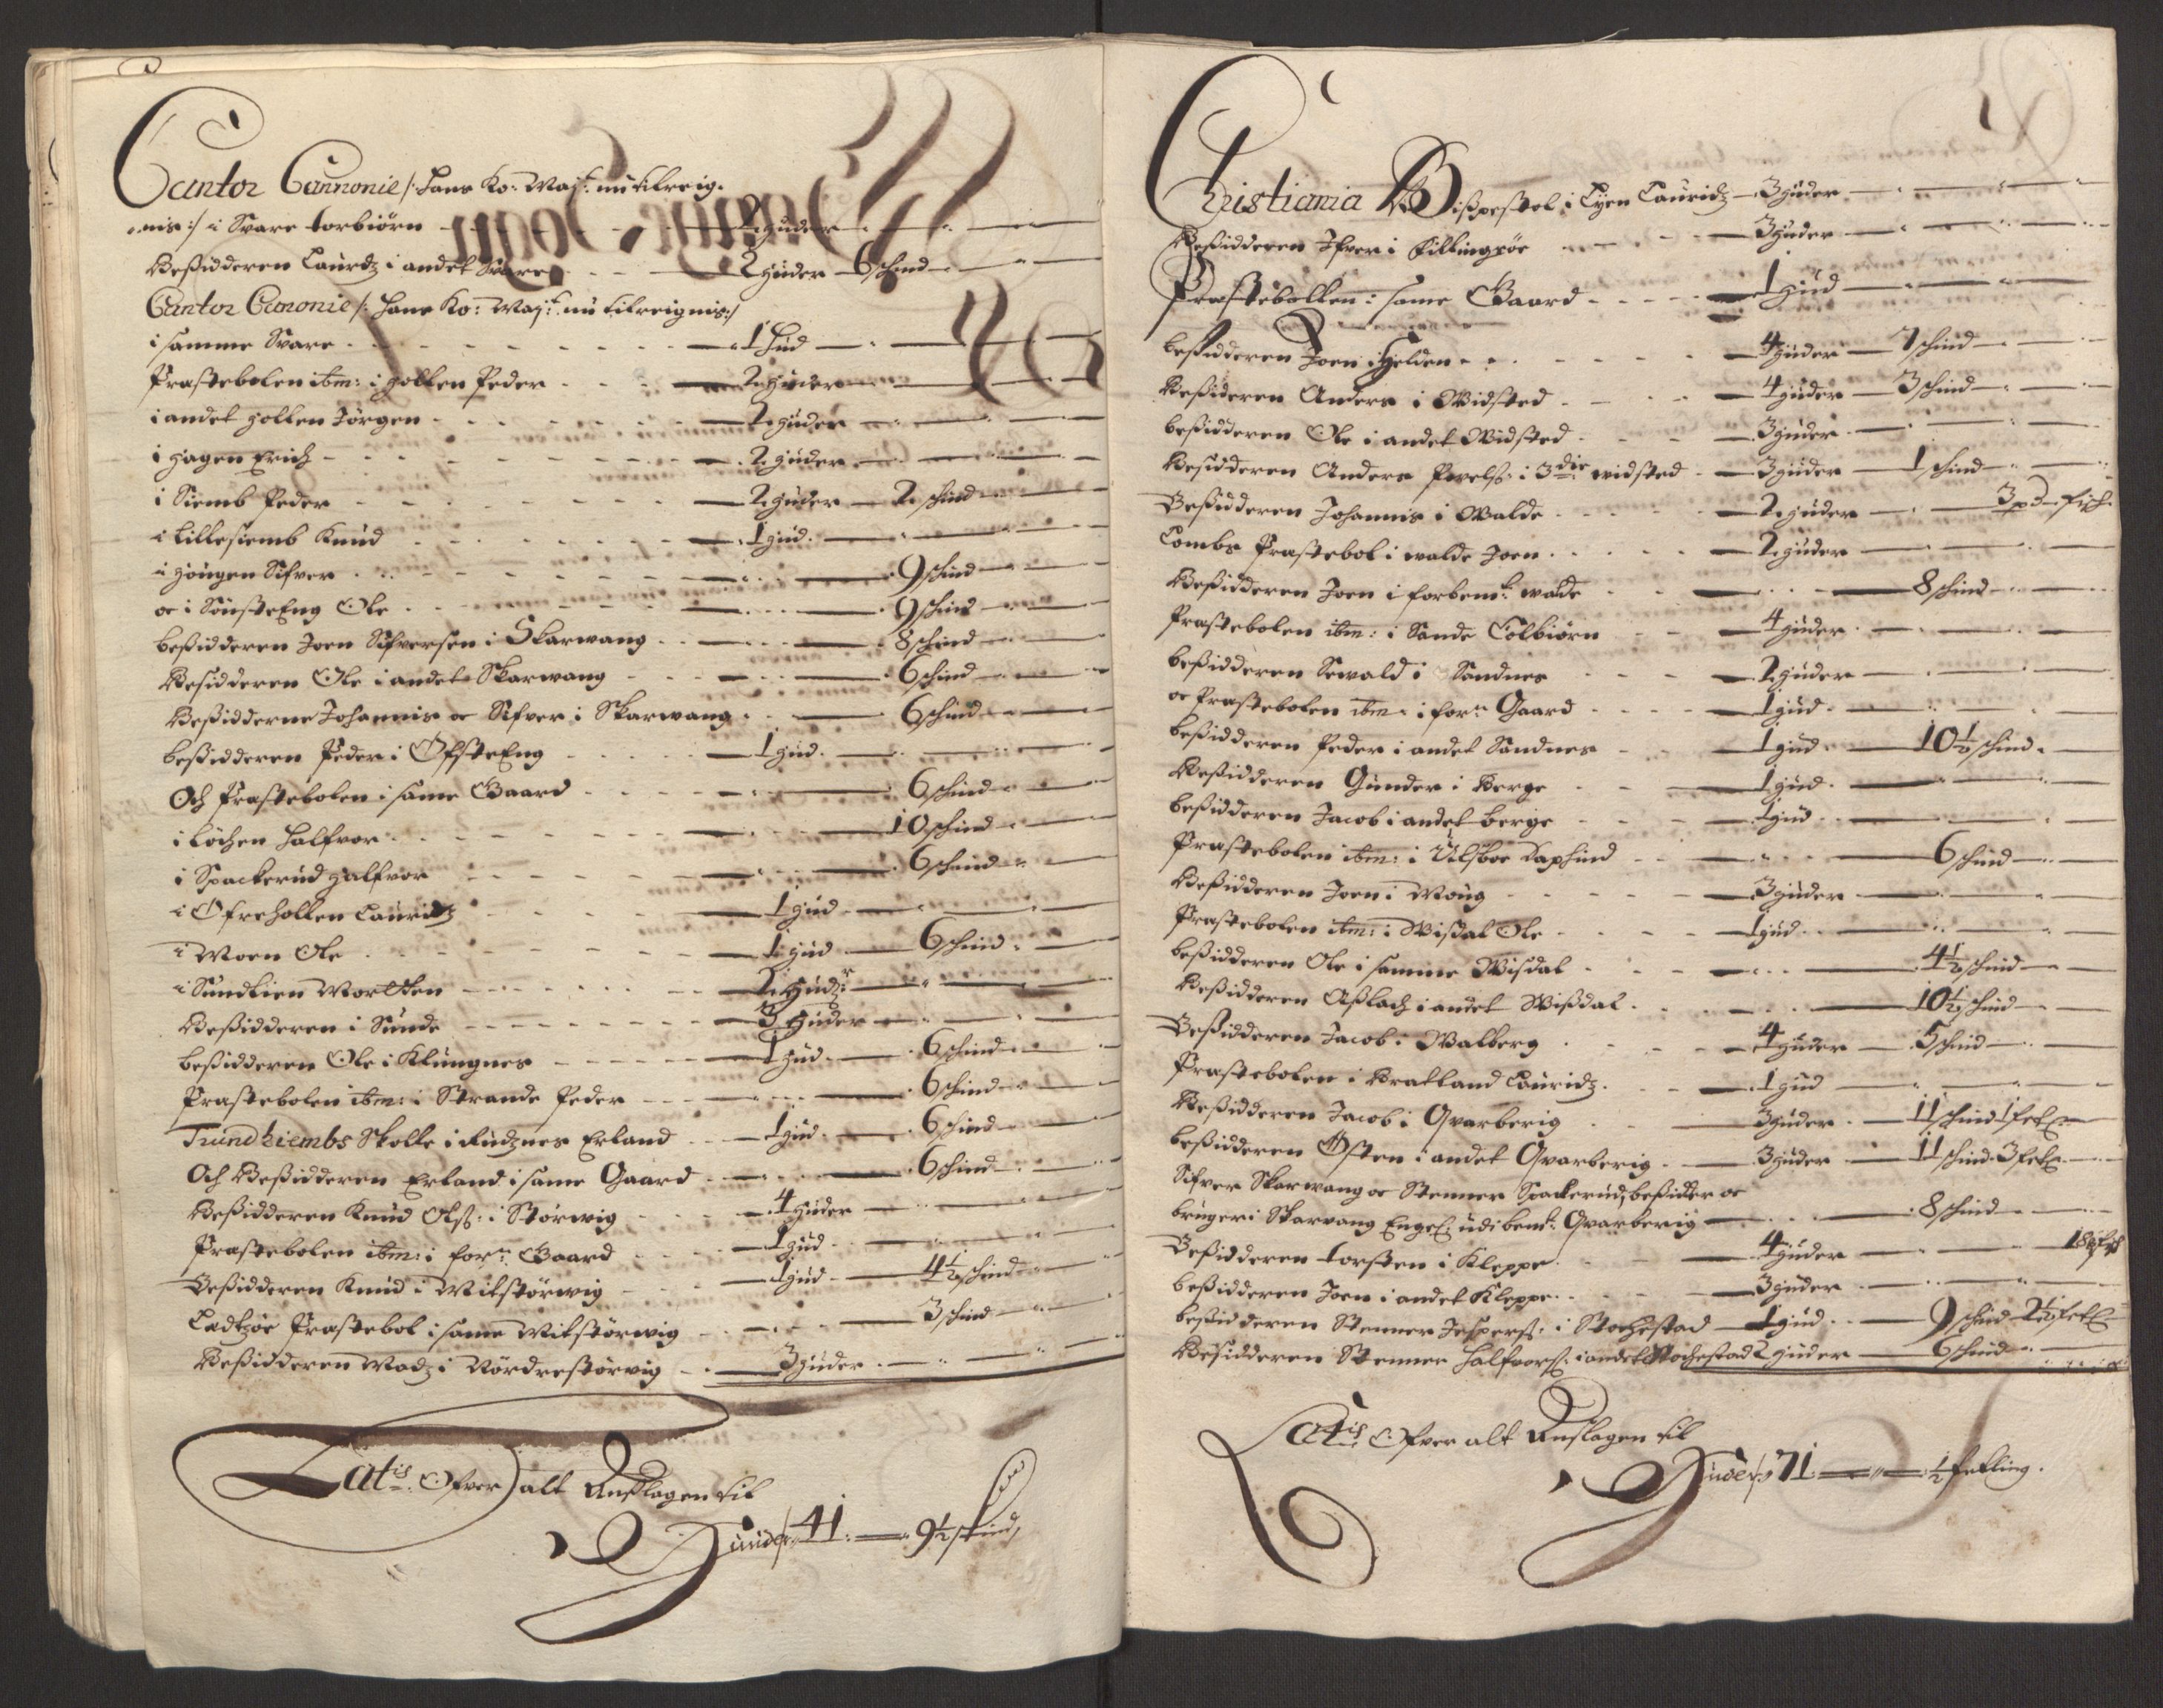 Cantor Cannonie /: Hans Ko: Maj:t nu tilreig-
nis :/ i Svare torbiörn 2 huder
Beßidderen Lauridz i andet Svare 2 huder 6 schind
Cantor Canonie /: Hans Ko: Maj:t nu tilreignis :/
i samme Svare 1 Hud
Præstebolen ibm: i Hollen Peder 2 huder
i andet Hollen Jörgen 2 huder
i Hagen Erich 2 huder
i Siemb Peder 2 huder 2 schind
i Lillesiemb Knud 1 hud
i Höugen Sifver 9 schind
oc i SönsteEng Ole 9 schind
beßidderen Joen Sifversen i Skarwang 8 schind
Besidderen Ole i andet Skarwang 6 schind
Beßidderne Johannis oc Sifver i Skarwang 6 schind
beßidderen Peder i ÖfsteEng 1 hud
Och Præstebolen i same Gaard 6 schind
i Löchen Halfvor 10 schind
i Spackerud Halfvor 6 schind
i Öfrehollen Lauridtz 1 hud
i Moen Ole 1 hud 6 schind
i Sundlien Mortten 2 Hud:r
Beßidderen i Sunde 3 Huder
beßidderen Ole i Klungnes 1 hud 6 schind
Præstebolen ibm: i Strande Peder 6 schind
Trundhiembs Skolle i Rudznes Erland 1 hud 6 schind
Och Beßidderen Erland i same Gaard 6 schind
Beßidderen Knud Olß: i Störwig 4 huder
Præstebolen ibm: i for:ne Gaard 1 hud
Beßidderen Knud i Mitstörwig 1 hud 4½ schind
Præstebol i same Mitstörwig 3 schind
Beßidderen Madz i Nördrestörwig 3 huder
Lat:is Ofver alt Anslagen til
Huder 41 9½ skind
Christiania Bißpestol i Lyen Lauridz 3 huder
Beßidderen Ifver i Killingröe 3 huder
Præstebollen i same Gaard 1 hud
beßidderen Joen i Helden 4 huder 7 schind
Beßideren Anders i Widsted 4 huder 3 schind
beßidderen Ole i andet Widsted 3 huder
Besidderen Anders Povelß: i 3die widsted 3 huder 1 schind
Beßidderen Johannis i Walde 2 huder 3 pd fisch
Lombs Præstebol i walde Joen 2 huder
Beßidderen Joen i forbem:te walde 8 schind
Præstebolen ibm: i Sande Colbiörn 4 huder
beßidderen Sewald i Sandnes 2 huder
oc Præstebolen ibm: i for:ne Gaard 1 hud
beßidderen Peder i andet Sandnes 1 hud 10½ schind
Beßidderen Gunder i Berge 1 hud
beßidderen Jacob i andet berge 1 hud
Præstebolen ibm: i Ulsboe 6 schind
Beßidderen Joen i Moug 3 huder
Præstebolen ibm: i Wisdal Ole 1 hud
beßidderen Ole i samme Wisdal 4½ schind
Beßidderen Aßlach i andet Wißdal 10½ schind
Beßidderen Jacob i Walberg 4 huder 5 schind
Præstebolen i Bratland Lauridz 1 hud
Beßidderen Jacob i Qvarberig 3 huder 11 schind 1 fetl:
beßidderen Østen i andet Qvarberig 3 huder 11 schind 3 fetl:
Sifver Skarwang oc Stenner Spackerud, beßider oc
bruger i Skarvang Engel: udi bem:te Qvarberig 8 schind
Beßidderen torsten i Kleppe 4 huder
beßidderen Joen i andet Kleppe 3 huder
beßidderen Stenner Jesperß: i Stochestad 1 hud 9 schind 2½ fetl:
Beßidderen Stenner Halfvorß: i andet Stochestad 2 huder 6 schind
Lat:is Ofver alt Anslagen til
Huder 71 ½ fetling.